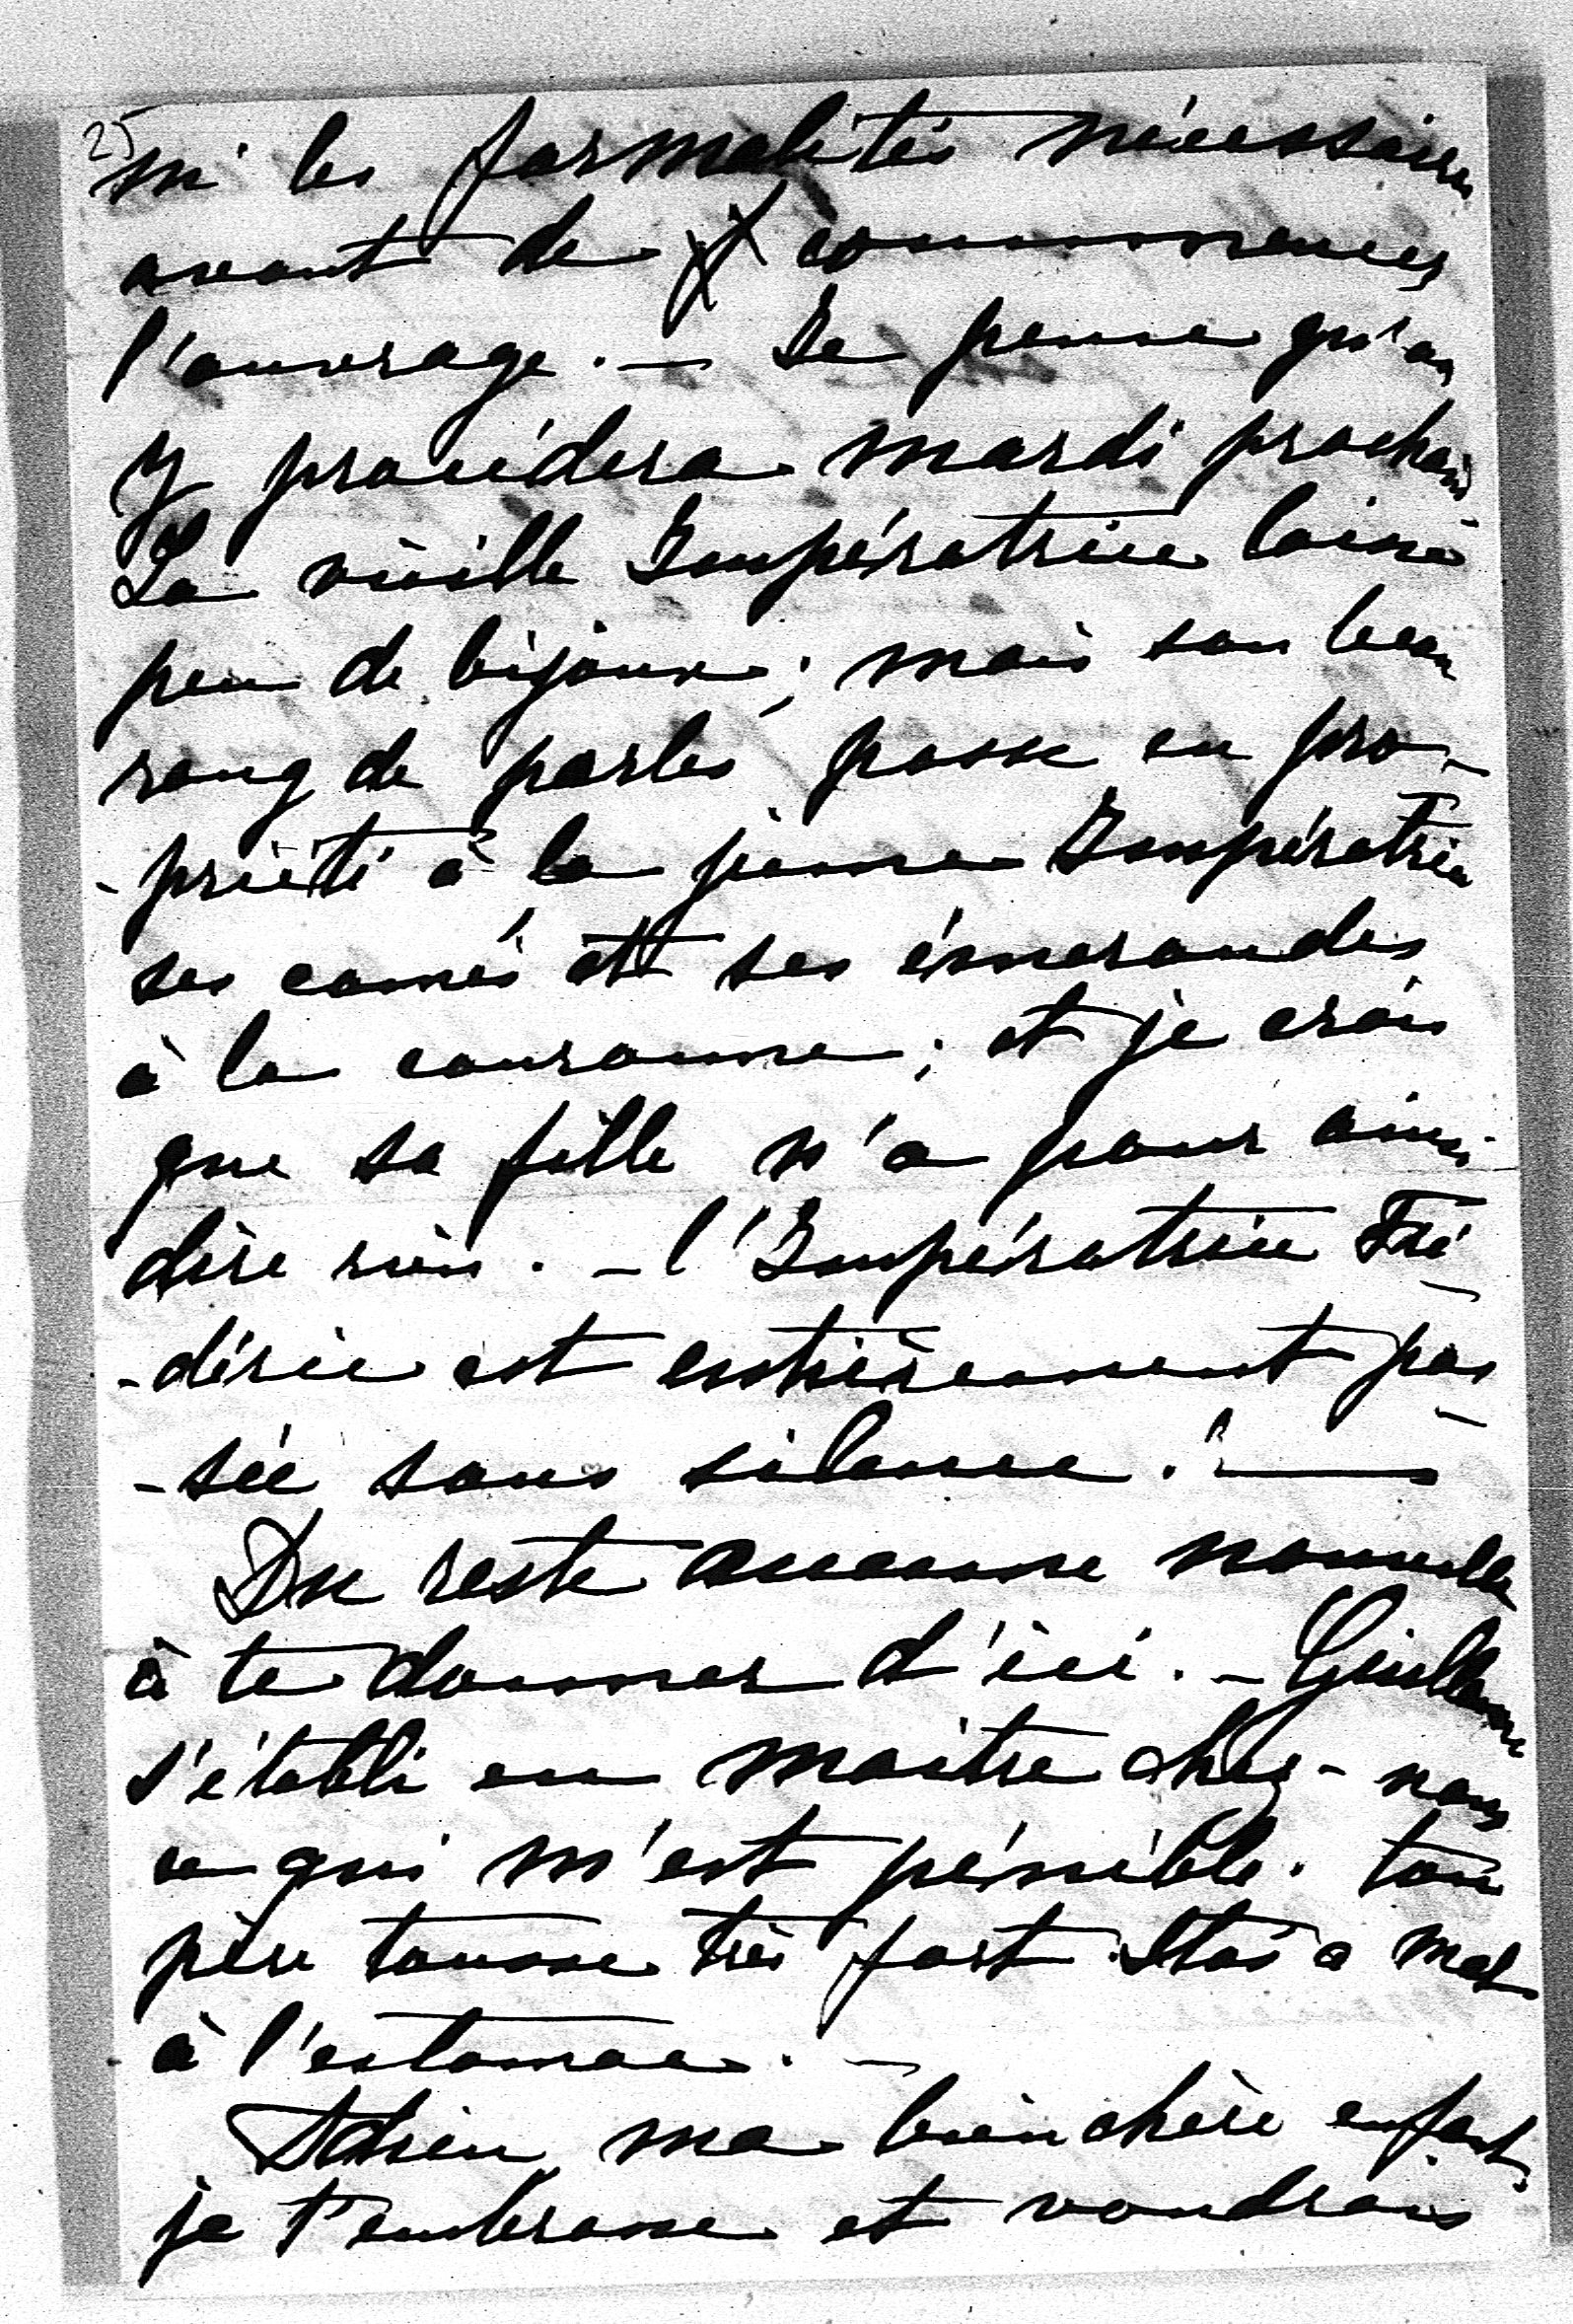 25
ni les formalités nécessaires
avant de commencer
l'ouvrage. — Je pense qu'on
y procédera mardi prochain
La vieille Impératrice laisse
peu de bijoux; mais son beau
rang de perles passe en pro-
-priété à la jeune Impératrice
ses camés et ses émeraudes
à la couronne; et je crois
que sa fille n'a pour ainsi
dire rien. - l'Impératrice Fré-
-déric est entièrement pas-
-sée sous silence! —
Du reste aucune nouvelle
à te donner d'ici. - Guillaume
s'établi en maitre chez-nous
ce qui m'est pénible. ton
père tousse très fort. a mal
à l'estomac. -
Adieu ma bien chère enfant,
je t'embrasse et voudrais